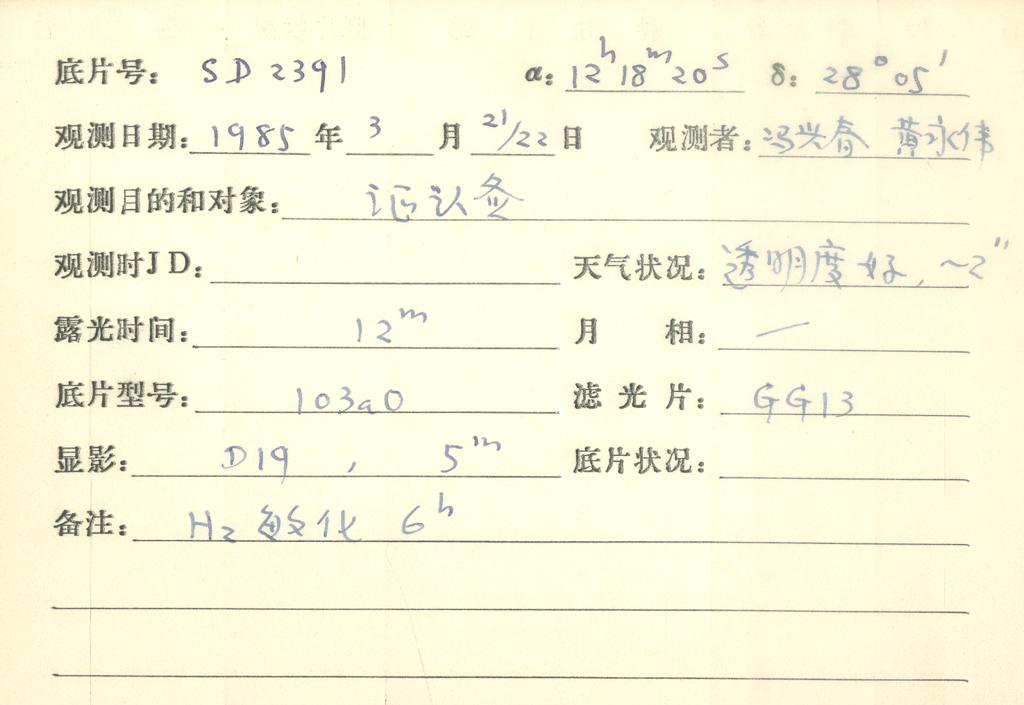 底片号: SD2391 α: 12ʰ18ᵐ20ˢ δ: 28°05′
观测日期: 1985年3月21/22日 观测者: 冯兴春 黄永伟
观测目的和对象: 证认
观测时JD:  天气状况: 透明度好, ~2″
露光时间: 12ᵐ 月相: —
底片型号: 103aO 滤光片: GG13
显影: D19, 5ᵐ 底片状况:
备注: H₂敏化 6ʰ